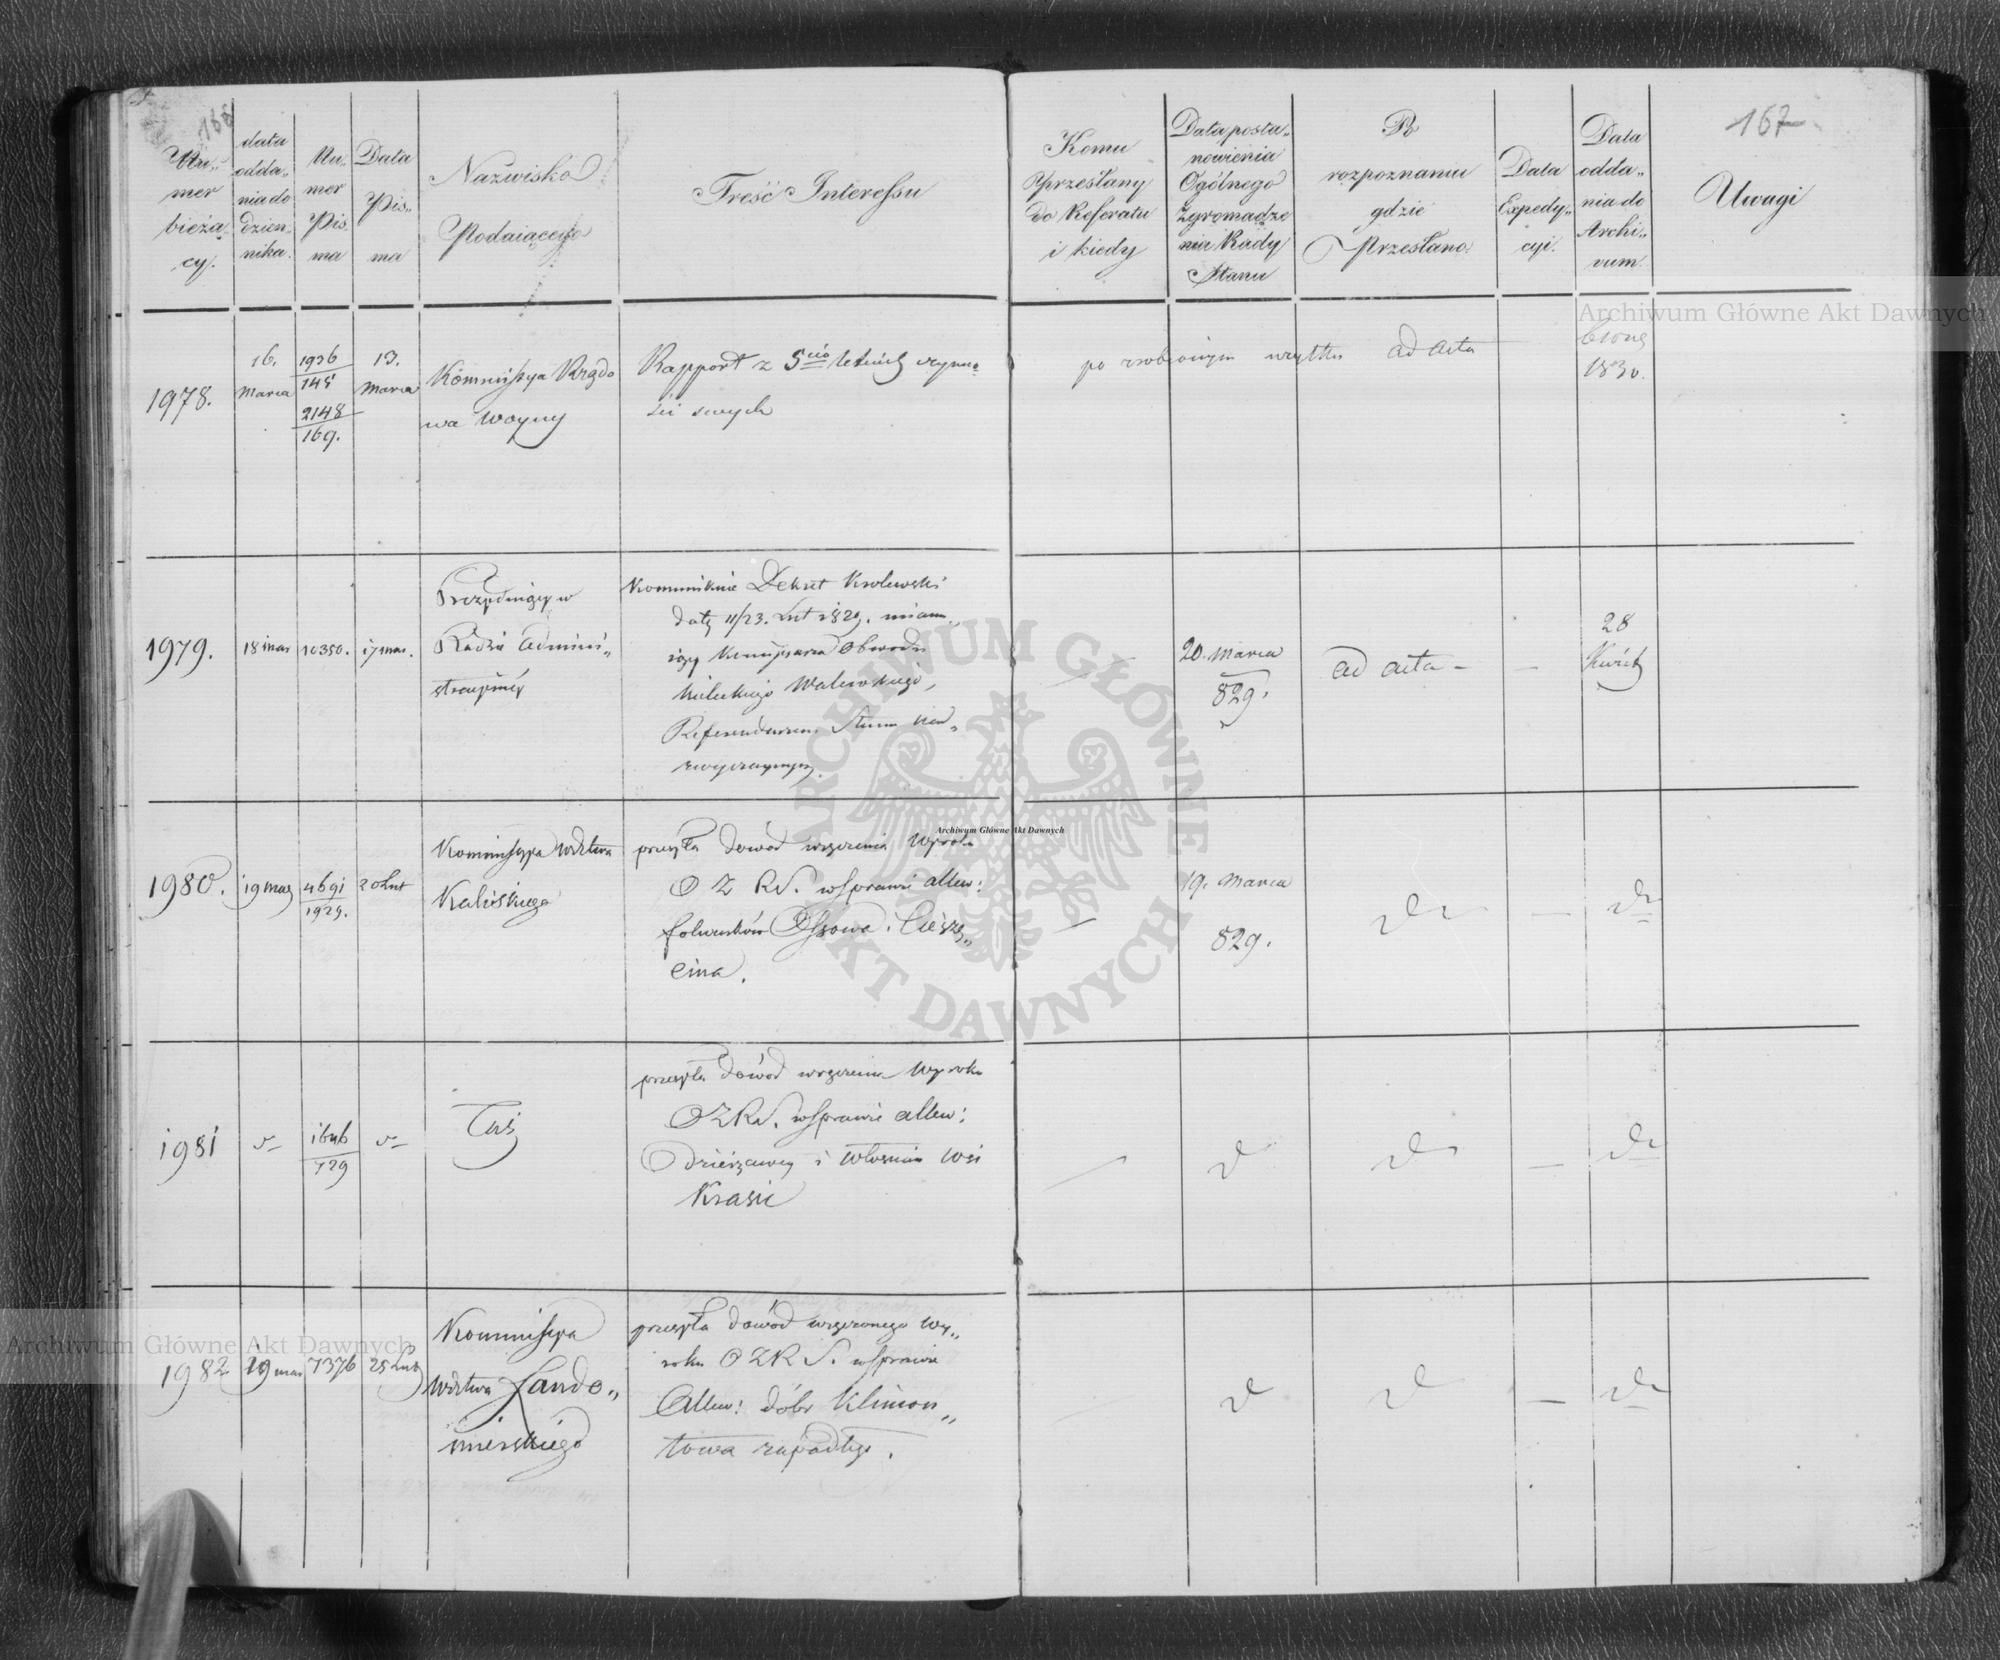 168
167
Nu„
mer
bieżą„
cy.
data
odda„
nia do
dzien„
nika.
Nu„
mer
Pis
ma
Data
Pis„
ma
Nazwisko
Podaiącego
Treść Interessu
Komu
Przesłany
do Referatu
i kiedy
Data posta„
nowienia
Ogólnego
Zgromadze
nia Rady
Stanu
Po
rozpoznaniu
gdzie
Przesłano
Data
Expedy„
cyi.
Data
odda„
nia do
Archi„
vum.
Uwagi
1978.
16.
Marca
1936
145
2148
169.
13.
Marca
Kommissya Rządo
wa Woyny
Rapport z 5cio letnich czynno
ści swych
po zrobionym użytku ad acta
1830.
1979.
18 mar
10350.
17 mar.
Radzie Admini„
stracyiney
Kommunikuie Dekret Krolewski
daty 11/23. Lut 1829. mianu„
iący Kommissarza Obwodu
Kieleckiego Walewskiego,
Referendarzem Stanu Nad„
zwyczaynym.
20. Marca
829.
ad acta –
–
28
Kwiet
1980.
19 mar
4691
1929.
20 Lut
Kommissya Wdztwa
Kaliskiego
przesyła dowód wręczenia Wyroku
O Z R S. w sprawie allew:
folwarków Ossowa i Ciesze„
cina.
19. Marca
829.
–
1981
1646
729
Taż
przesyła dowód wręczenia Wyroku
O Z R S. w sprawie allew:
Dzierżawcy i Włościan Wsi
Krasic
–
1982
19 mar
7376
25 Lut
Kommissya
Wdztwa Sando„
mierskiego
przesyła dowód wręczonego Wy„
roku O Z R S. w sprawie
Allew: dóbr Klimon„
towa zapadłego.
–
Archiwum Główne Akt Dawnych
ARCHIWUM GŁÓWNE AKT DAWNYCH
Archiwum Główne Akt Dawnych
Archiwum Główne Akt Dawnych